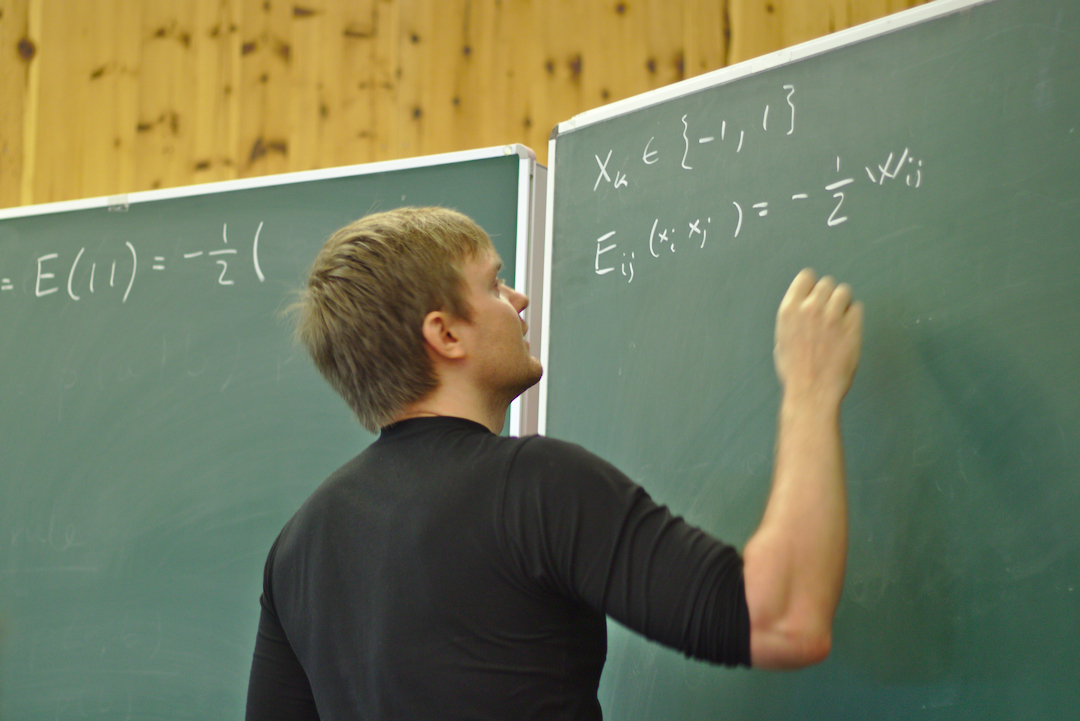 = E(11) = -1/2 (
X_k ∈ {-1, 1}
E_ij (x_i x_j) = - 1/2 W_ij